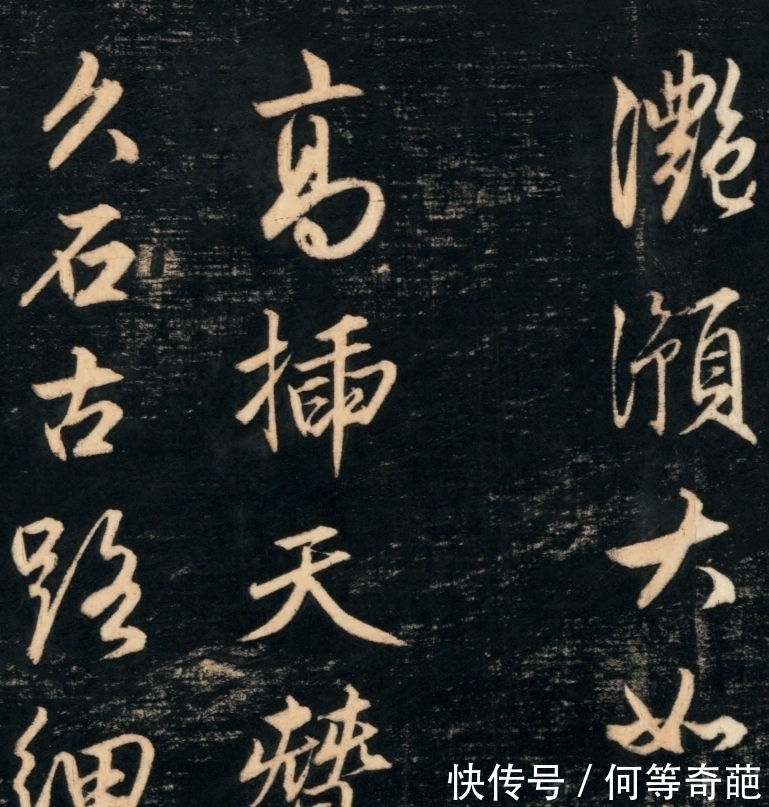 灧澦大如
高插天
久石古路細
快传号 / 何等奇葩